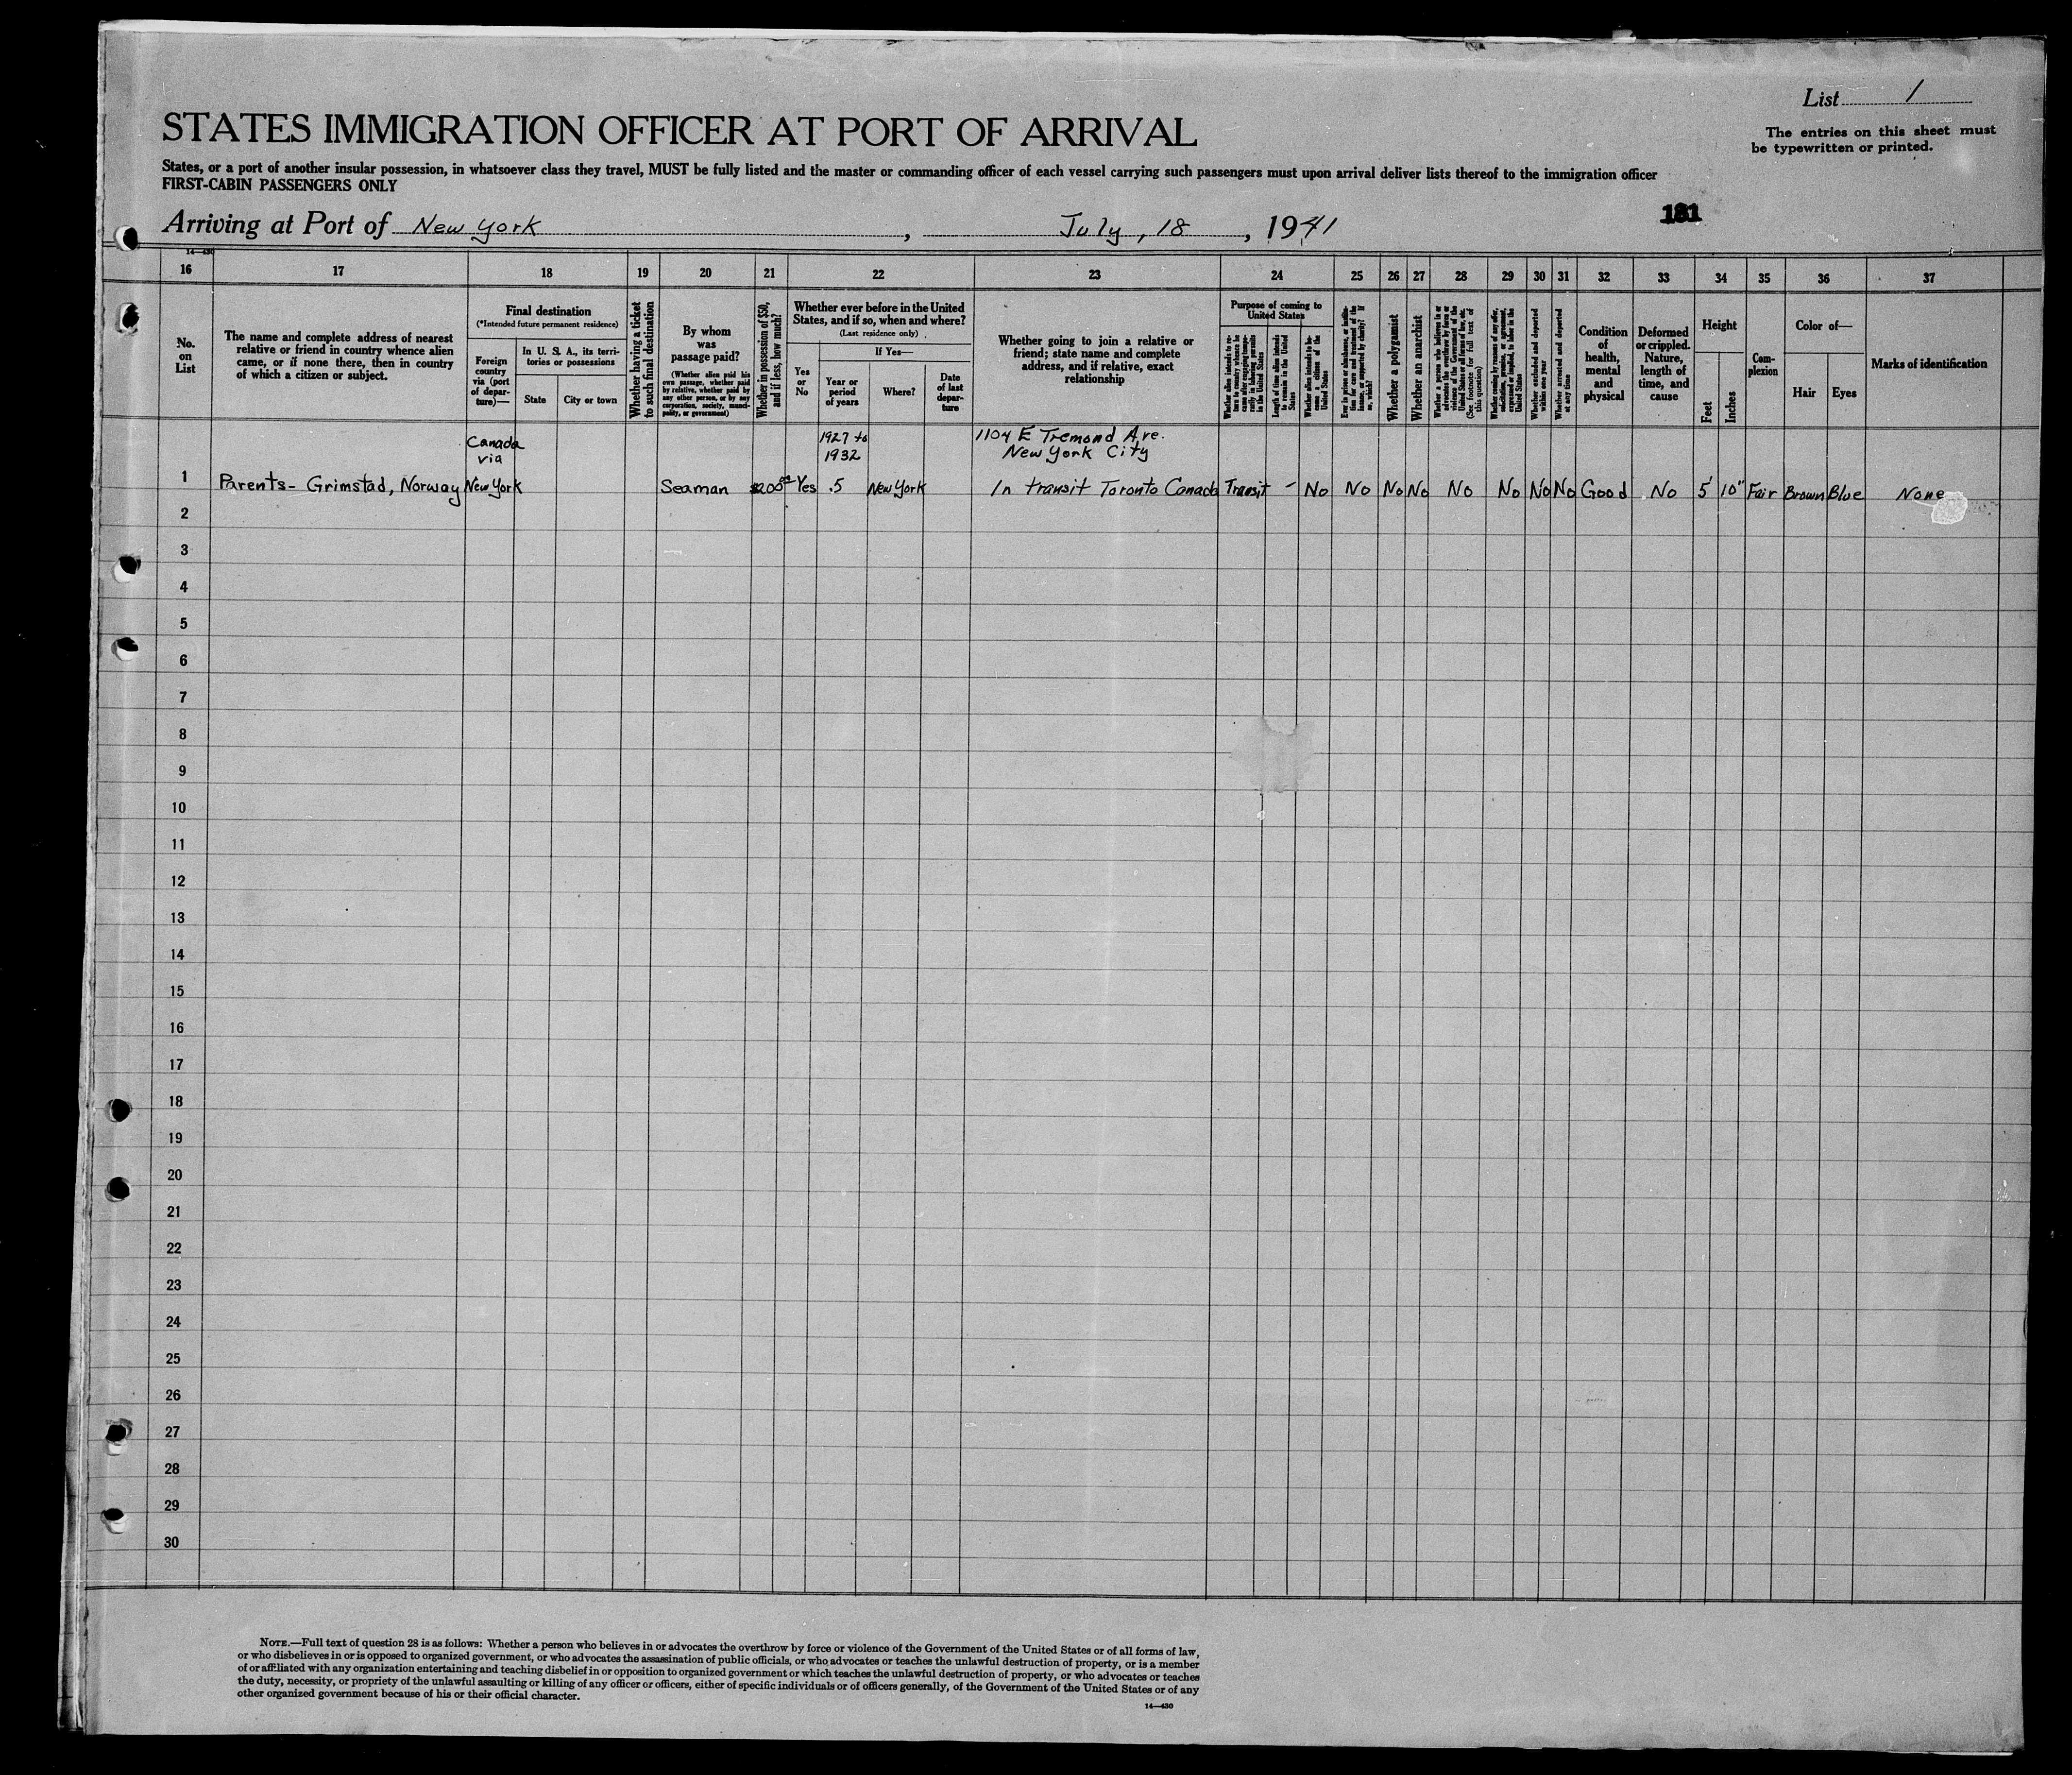 List 1
The entries on this sheet must
be typewritten or printed.
STATES IMMIGRATION OFFICER AT PORT OF ARRIVAL
States, or a port of another insular possession, in whatsoever class they travel, MUST be fully listed and the master or commanding officer of each vessel carrying such passengers must upon arrival deliver lists thereof to the immigration officer
FIRST-CABIN PASSENGERS ONLY
131
Arriving at Port of New York, July, 18, 1941
14—430
16 17 18 19 20 21 22 23 24 25 26 27 28 29 30 31 32 33 34 35 36 37
No.
on
List
The name and complete address of nearest
relative or friend in country whence alien
came, or if none there, then in country
of which a citizen or subject.
Final destination
(*Intended future permanent residence)
Foreign
country
via (port
of depar-
ture)—
In U. S. A., its terri-
tories or possessions
State
City or town
Whether having a ticket
to such final destination
By whom
was
passage paid?
(Whether alien paid his
own passage, whether paid
by relative, whether paid by
any other person, or by any
corporation, society, munici-
pality, or government)
Whether in possession of $50,
and if less, how much?
Whether ever before in the United
States, and if so, when and where?
(Last residence only)
Yes
or
No
If Yes—
Year or
period
of years
Where?
Date
of last
depar-
ture
Whether going to join a relative or
friend; state name and complete
address, and if relative, exact
relationship
Purpose of coming to
United States
Whether alien intends to re-
turn to country whence he
came after engaging tempo-
rarily in laboring pursuits
in the United States
Length of time alien intends
to remain in the United
States
Whether alien intends to be-
come a citizen of the
United States
Ever in prison or almshouse, or institu-
tion for care and treatment of the
insane, or supported by charity? If
so, which?
Whether a polygamist
Whether an anarchist
Whether a person who believes in or
advocates the overthrow by force or
violence of the Government of the
United States or all forms of law, etc.
(See footnote for full text of
this question)
Whether coming by reason of any offer,
solicitation, promise, or agreement,
expressed or implied, to labor in the
United States
Whether excluded and deported
within one year
Whether arrested and deported
at any time
Condition
of
health,
mental
and
physical
Deformed
or crippled.
Nature,
length of
time, and
cause
Height
Feet
Inches
Com-
plexion
Color of—
Hair
Eyes
Marks of identification
Canada
via
1927 to
1932
1104 E Tremond Ave.
New York City
1 Parents - Grimstad, Norway New York Seaman $200 Yes 5 New York In transit Toronto Canada Transit - No No No No No No No No Good No 5' 10" Fair Brown Blue None
2
3
4
5
6
7
8
9
10
11
12
13
14
15
16
17
18
19
20
21
22
23
24
25
26
27
28
29
30
NOTE.—Full text of question 28 is as follows: Whether a person who believes in or advocates the overthrow by force or violence of the Government of the United States or of all forms of law,
or who disbelieves in or is opposed to organized government, or who advocates the assassination of public officials, or who advocates or teaches the unlawful destruction of property, or is a member
of or affiliated with any organization entertaining and teaching disbelief in or opposition to organized government or which teaches the unlawful destruction of property, or who advocates or teaches
the duty, necessity, or propriety of the unlawful assaulting or killing of any officer or officers, either of specific individuals or of officers generally, of the Government of the United States or of any
other organized government because of his or their official character.
14—430